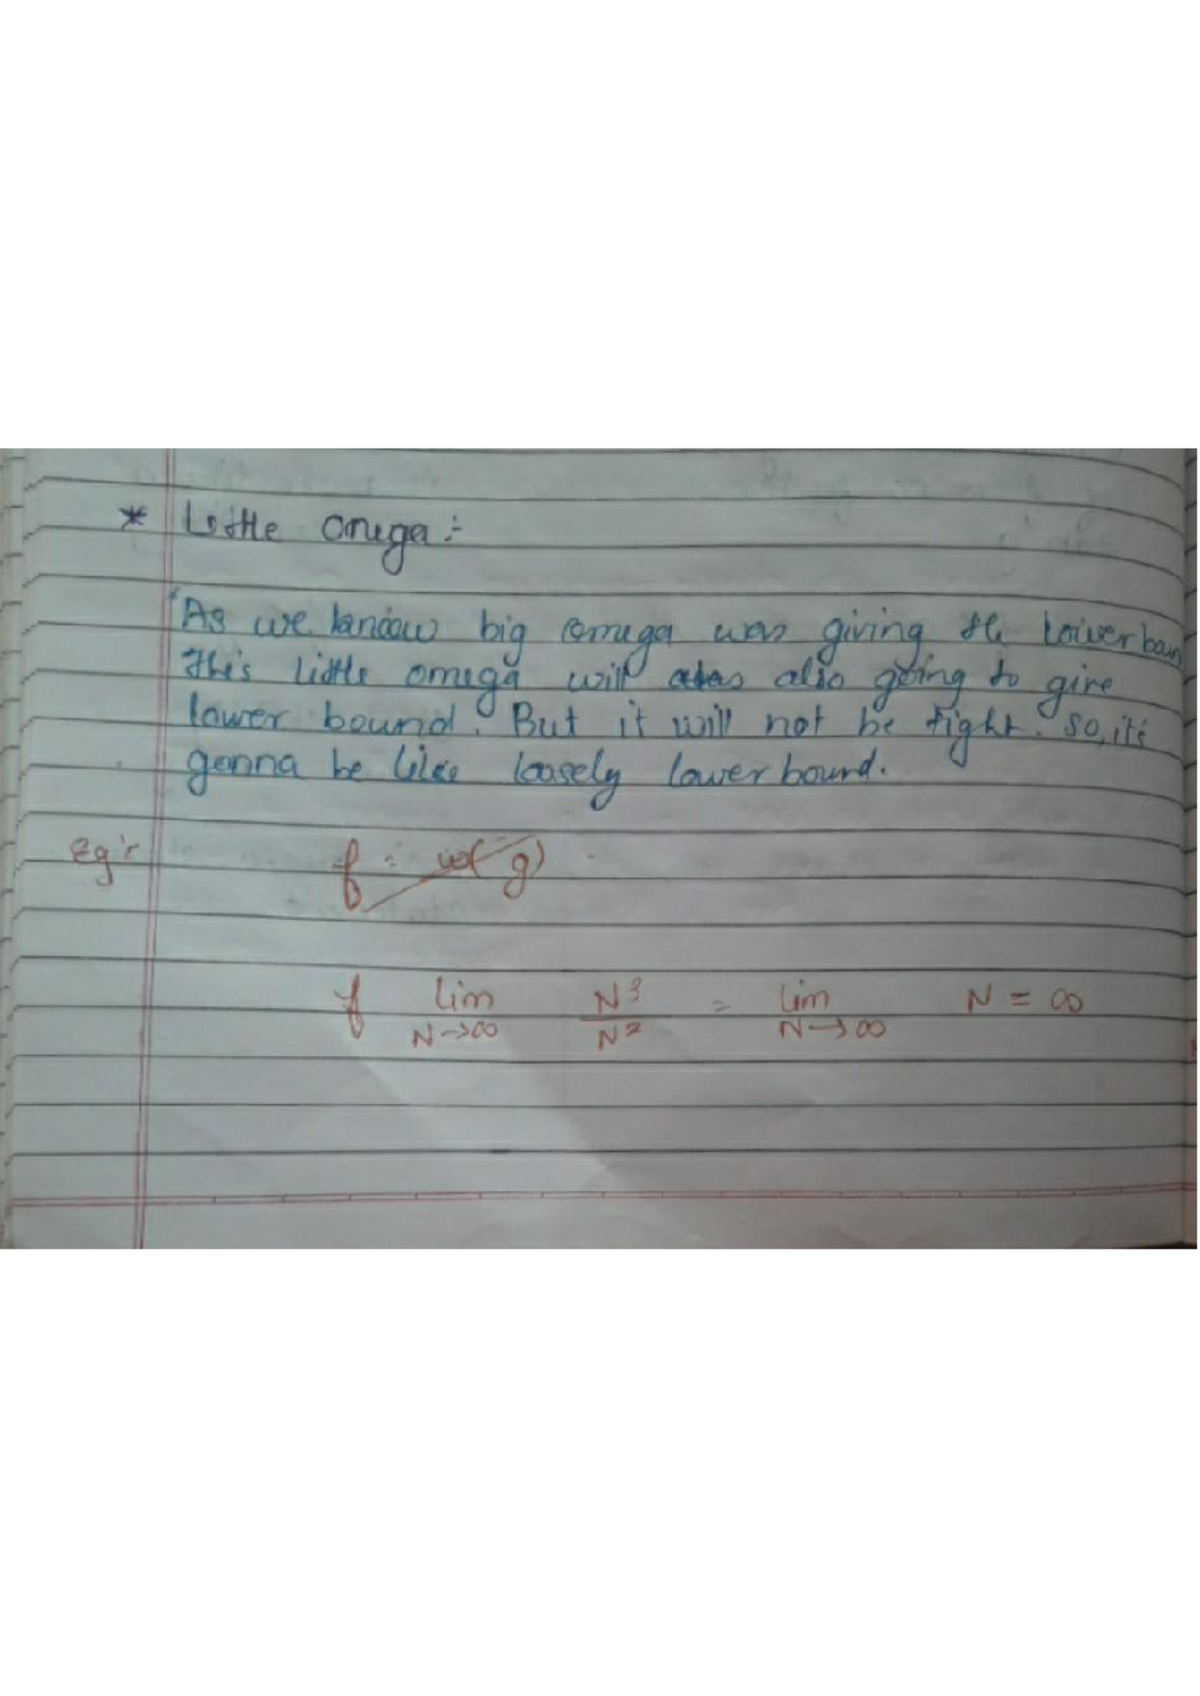 * Little omega :-
As we know big omega was giving the lower boun
this little omega will also going to give
lower bound. But it will not be tight. so, it's
gonna be like loosely lower bound.
Eg :- f = ω(g)
f lim N→∞ N³/N² = lim N→∞ N = ∞